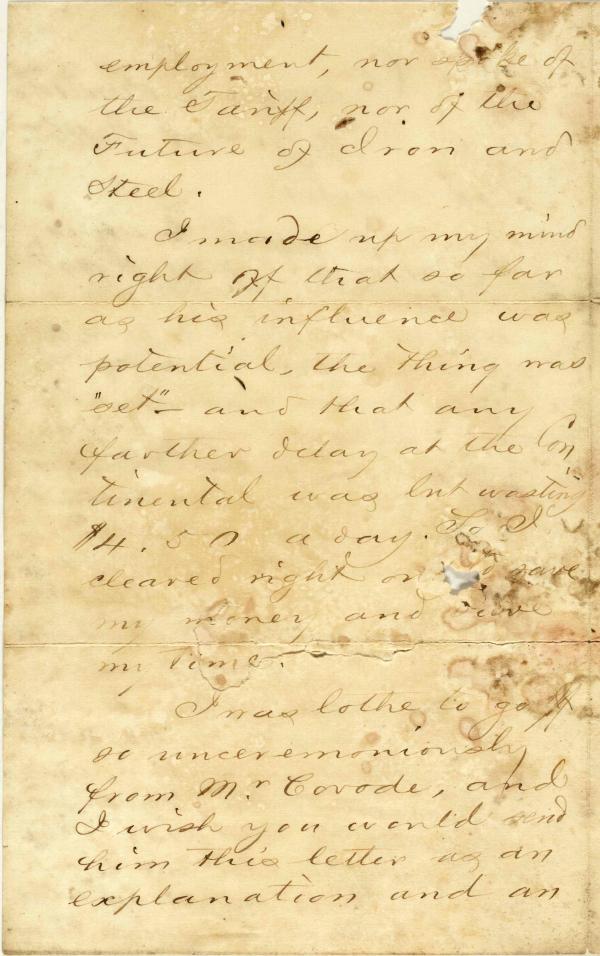 employment, nor spoke of
the Tariff, nor of the
Future of Iron and
Steel.
I made up my mind
right off that so far
as his influence was
potential, the thing was
"set" - and that any
farther delay at the Con
tinental was but wasting
$4.50 a day. So I
cleared right o d save
my money and save
my time.
I was lothe to go off
so unceremoniously
from Mr Covode, and
I wish you would send
him this letter as an
explanation and an